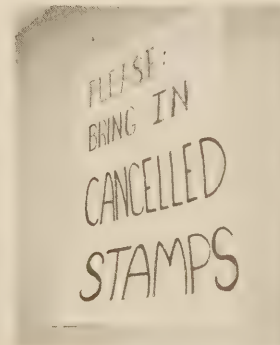 PLEASE:
BRING IN
CANCELLED
STAMPS